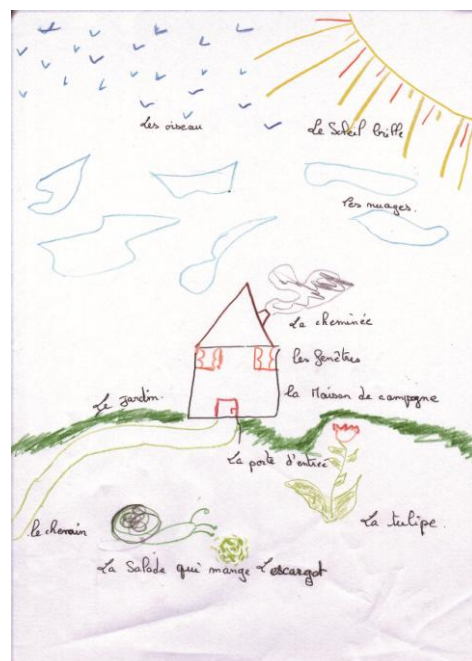 Les oiseau
Le Soleil brille
les nuages.
La cheminée
les fenêtres
la Maison de campagne
Le Jardin
La porte d'entrée
le chemin
La tulipe.
La Salade qui mange L'escargot